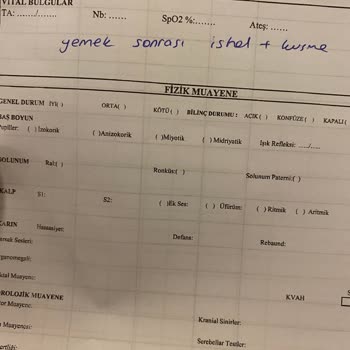 VİTAL BULGULAR
TA: ......./....... Nb: ...... SpO2 %:....... Ateş: ......
yemek sonrası ishal + kusma
FİZİK MUAYENE
GENEL DURUM İYİ( ) ORTA( ) KÖTÜ ( ) BİLİNÇ DURUMU : AÇIK ( ) KONFÜZE( ) KAPALI (
BAŞ BOYUN
Pupiller: ( ) İzokorik ( )Anizokorik ( )Miyotik ( ) Midriyatik Işık Refleksi: ..../....
SOLUNUM Ral:( ) Ronküs:( ) Solunum Paterni:( )
KALP S1: S2: ( )Ek Ses: ( ) Üfürüm: ( ) Ritmik ( ) Aritmik
KARIN Hassasiyet: Defans: Rebaund:
Sesleri:
KVAH
NÖROLOJİK MUAYENE
Kranial Sinirler:
Muayenesi: Serebellar Testler: